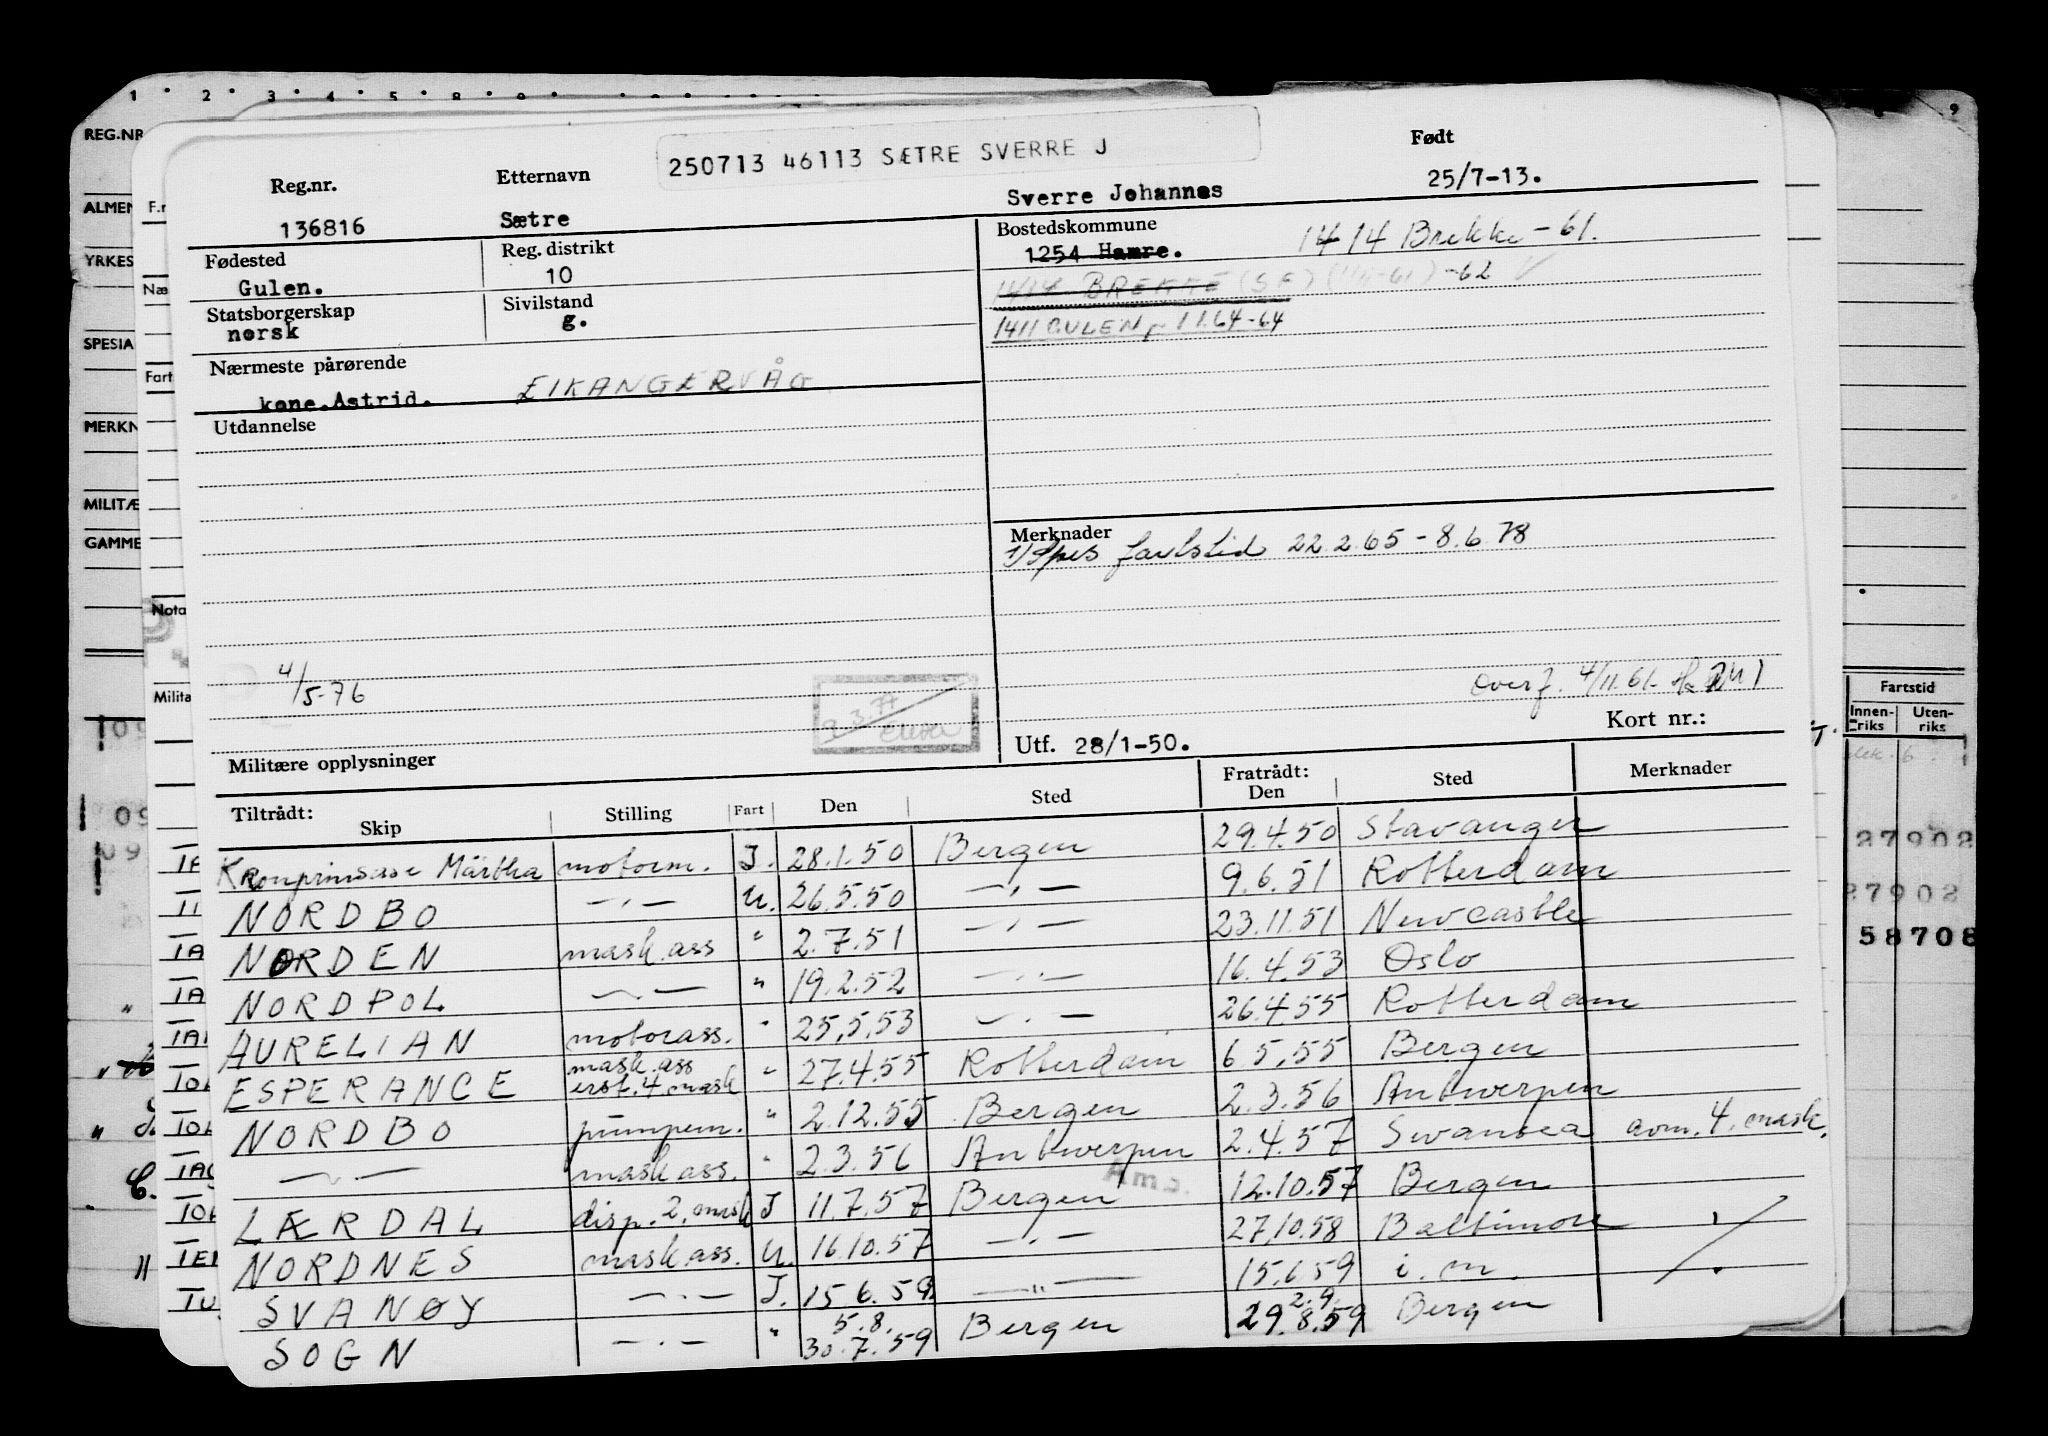 250713 46113 SÆTRE SVERRE J
Reg.nr. Etternavn Født
136816 Sætre Sverre Johannes 25/7-13.
Fødested Reg. distrikt Bostedskommune
Gulen. 10 1254 Hamre. 1414 Brekke -61.
Statsborgerskap Sivilstand 1414 BREKKE (SF) (1/1-61) -62
norsk g. 1411 GULEN 1 1.64-64
Nærmeste pårørende
kone.Astrid. EIKANGERVÅG
Utdannelse
Merknader
1) Spes fartstid 22.2.65 - 8.6.78
4/5-76
Overf. 4/11.61.
Utf. 28/1-50. Kort nr.:
Militære opplysninger
Tiltrådt: Skip Stilling Fart Den Sted Fratrådt: Den Sted Merknader
Kronprinsesse Märtha motorm. I. 28.1.50 Bergen 29.4.50 Stavanger
NORDBO —„— U. 26.5.50 —„— 9.6.51 Rotterdam
NORDEN mask.ass " 2.7.51 —„— 23.11.51 Newcastle
NORDPOL —„— " 19.2.52 —„— 16.4.53 Oslo
AURELIAN motorass. " 25.5.53 —„— 26.4.55 Rotterdam
ESPERANCE mask.ass erst. 4 mask " 27.4.55 Rotterdam 6 5.55 Bergen
NORDBO pumpem. " 2.12.55 Bergen 2.3.56 Antwerpen
—„— mask ass. " 2.3.56 Antwerpen 2.4.57 Swansea avm. 4. mask.
LÆRDAL disp. 2. mask I 11.7.57 Bergen 12.10.57 Bergen
NORDNES mask.ass. U. 16.10.57 —„— 27.10.58 Baltimore
SVANØY —„— I. 15.6.59 —„— 15.6 59 i.m.
SOGN —„— " 5.8. 30.7.59 Bergen 2.9. 29.8.59 Bergen
1 2 3 4 5 8 9
REG.NR
ALMEN
YRKES
SPESIA
MERKN
MILITÆ
GAMME
F.r
Næ
Fart
Nota
Milita
9
Fartstid
Innenriks Utenriks
27902
27902
58708